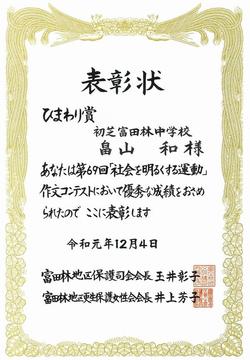 表彰状
ひまわり賞
初芝富田林中学校
畠山 和 様
あなたは第69回「社会を明るくする運動」
作文コンテストにおいて優秀な成績をおさめ
られたので ここに表彰します
令和元年12月4日
富田林地区保護司会会長 玉井彰子
富田林地区更生保護女性会会長 井上芳子